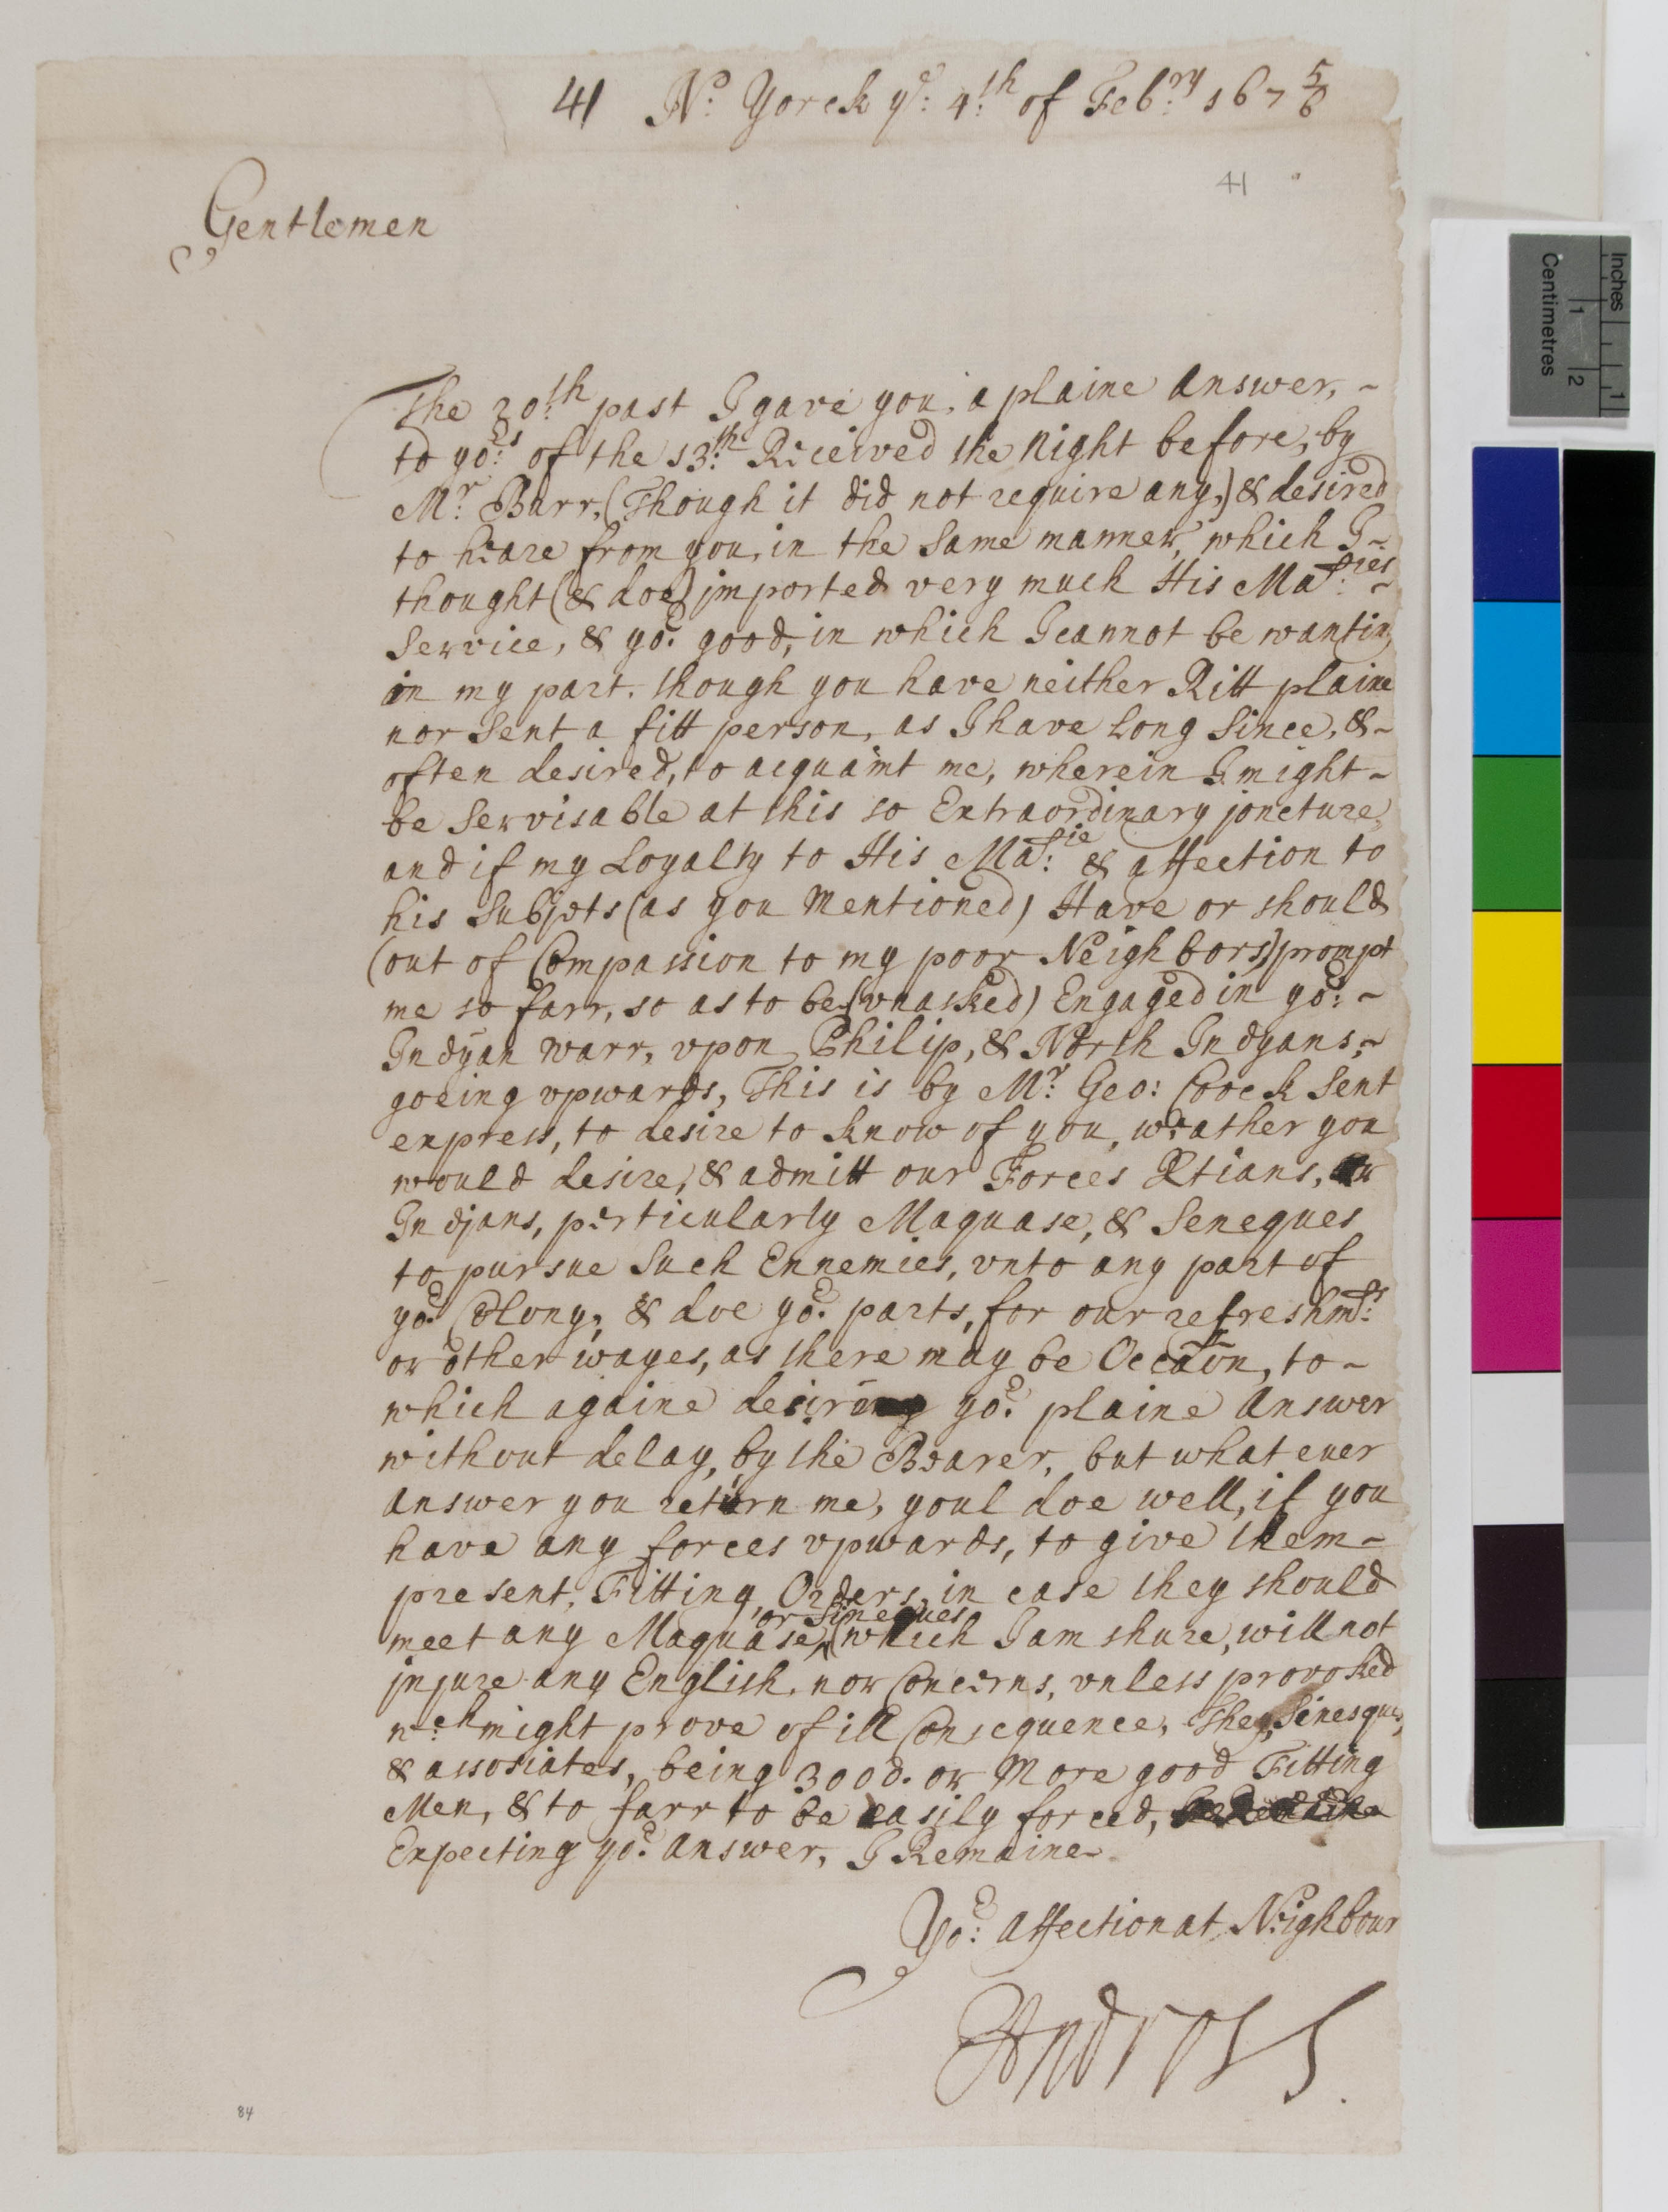 41 N: Yorck ye: 4:th of Feb:ry 167 5/6
41
Gentlemen
The 20:th past I gave you, a plaine answer, ~
to yo:rs of the 13:th Received the night before, by
Mr: Burr, (Though it did not require any,) & desired
to heare from you, in the same manner, which I ~
thought (& doe) jmported very much His Ma:ties ~
Service, & yor. good, in which I cannot be wanting
on my part. though you have neither Ritt plaine
nor sent a fitt person, as I have Long since, & ~
often desired, to acquaint me, wherein I might ~
be Servisable at this so Extraordinary joncture,
and if my Loyalty to His Ma:tie & affection to
his Subjets (as you mentioned) Have or should
(out of Compassion to my poor Neighbors) prompt
me so farr, so as to be (vnasked) Engaged in yor: ~
Indyan warr, vpon Philip, & North Indyans, ~
goeing vpwards, This is by Mr: Geo: Coock sent
express, to desire to know of you, weather you
would desire, & admitt our Forces Xtians, or
Indjans, perticularly Maquase, & Seneques
to pursue Such Ennemies, vnto any part of
yor. Colony, & doe yor. parts, for our refreshm:ts
or other wayes, as there may be Occaon, to ~
which againe desireing yor. plaine answer
without delay, by the Bearer, but what ever
answer you return me, youl doe well, if you
have any forces vpwards, to give them ~
present, Fitting, Orders, in case they should
or Sineques
meet any Maquase, ^ (which I am shure, will not
jnjure any English, nor Concerns, vnless provoked
w:ch might prove of ill Consequence, They, Sinesques,
& assosiates, being 3000. or More good Fitting
Men, & to farr to be easily forced,
Expecting yor. answer, I Remaine
Yo:r affectionat Neighbour
EAndross
84
Inches
1
Centimetres
1
2